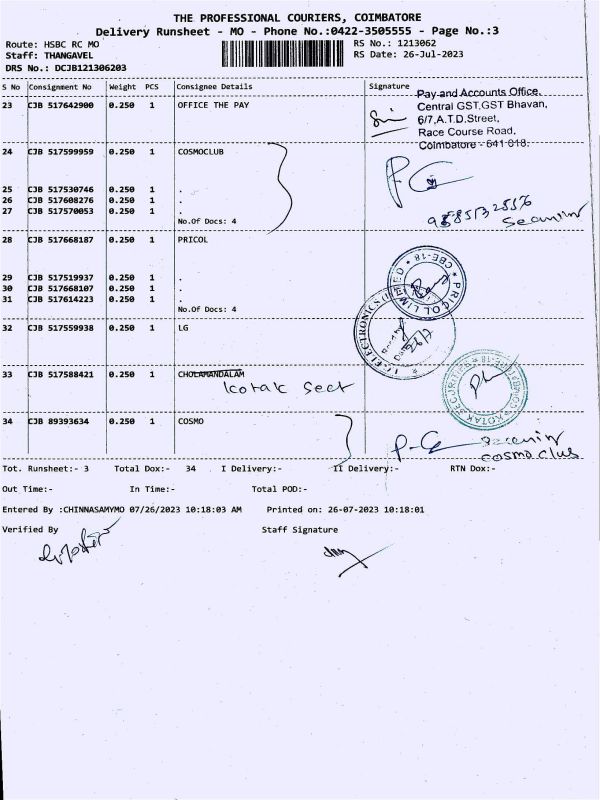 THE PROFESSIONAL COURIERS, COIMBATORE
Delivery Runsheet - MO - Phone No.:0422-3505555 - Page No.:3
Route: HSBC RC MO RS No.: 1213062
Staff: THANGAVEL RS Date: 26-Jul-2023
DRS No.: DCJB121306203
S No Consignment No Weight PCS Consignee Details Signature
Pay and Accounts Office,
23 CJB 517642900 0.250 1 OFFICE THE PAY Central GST,GST Bhavan,
6/7,A.T.D.Street,
Race Course Road,
Coimbatore - 641 018.
24 CJB 517599959 0.250 1 COSMOCLUB
25 CJB 517530746 0.250 1 .
26 CJB 517608276 0.250 1 .
27 CJB 517570053 0.250 1 .
No.Of Docs: 4
28 CJB 517668187 0.250 1 PRICOL
PRICOL LIMITED CBE-18
29 CJB 517519937 0.250 1 .
30 CJB 517668107 0.250 1 .
31 CJB 517614223 0.250 1 .
No.Of Docs: 4
32 CJB 517559938 0.250 1 LG
33 CJB 517588421 0.250 1 CHOLAMANDALAM
Kotak Sect
KOTAK SECURITIES
34 CJB 89393634 0.250 1 COSMO
cosmo club
Tot. Runsheet:- 3 Total Dox:- 34 I Delivery:- II Delivery:- RTN Dox:-
Out Time:- In Time:- Total POD:-
Entered By :CHINNASAMYMO 07/26/2023 10:18:03 AM Printed on: 26-07-2023 10:18:01
Verified By Staff Signature